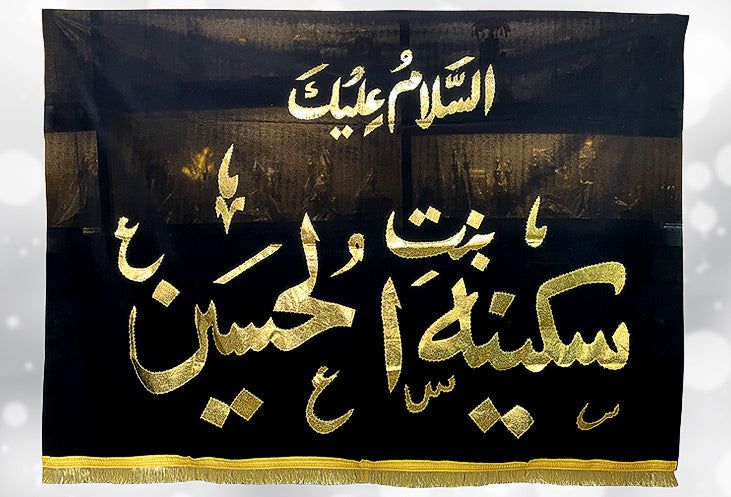 السَّلَامُ عَلِيُكَ
سكينة بنتِ الُحسَين